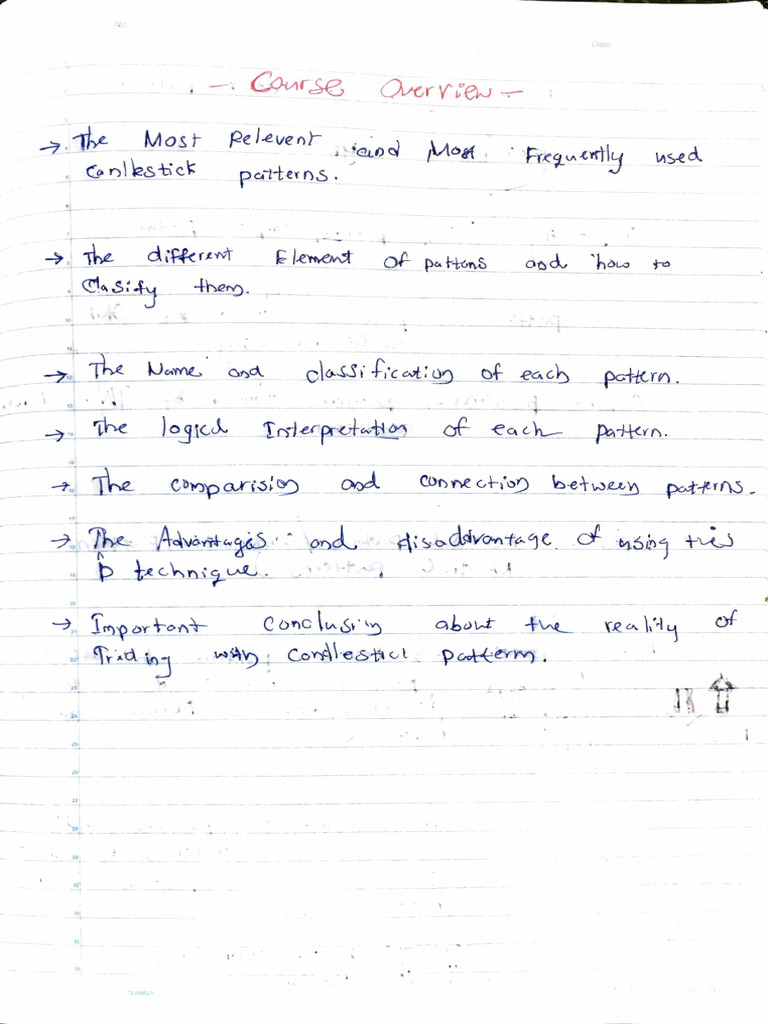 No
Date
- Course Overview -
→ The Most Relevent and Most Frequently used
Canllestick patterns.
→ The different Element of pattans and how to
Clasify them.
→ The Name and classification of each pattern.
→ The logical Interpretation of each pattern.
→ The comparision and connection between patterns.
→ The Advantages and disaddvantage of using this
technique.
→ Important Conclusion about the reality of
Trading with Condlestick pattern.